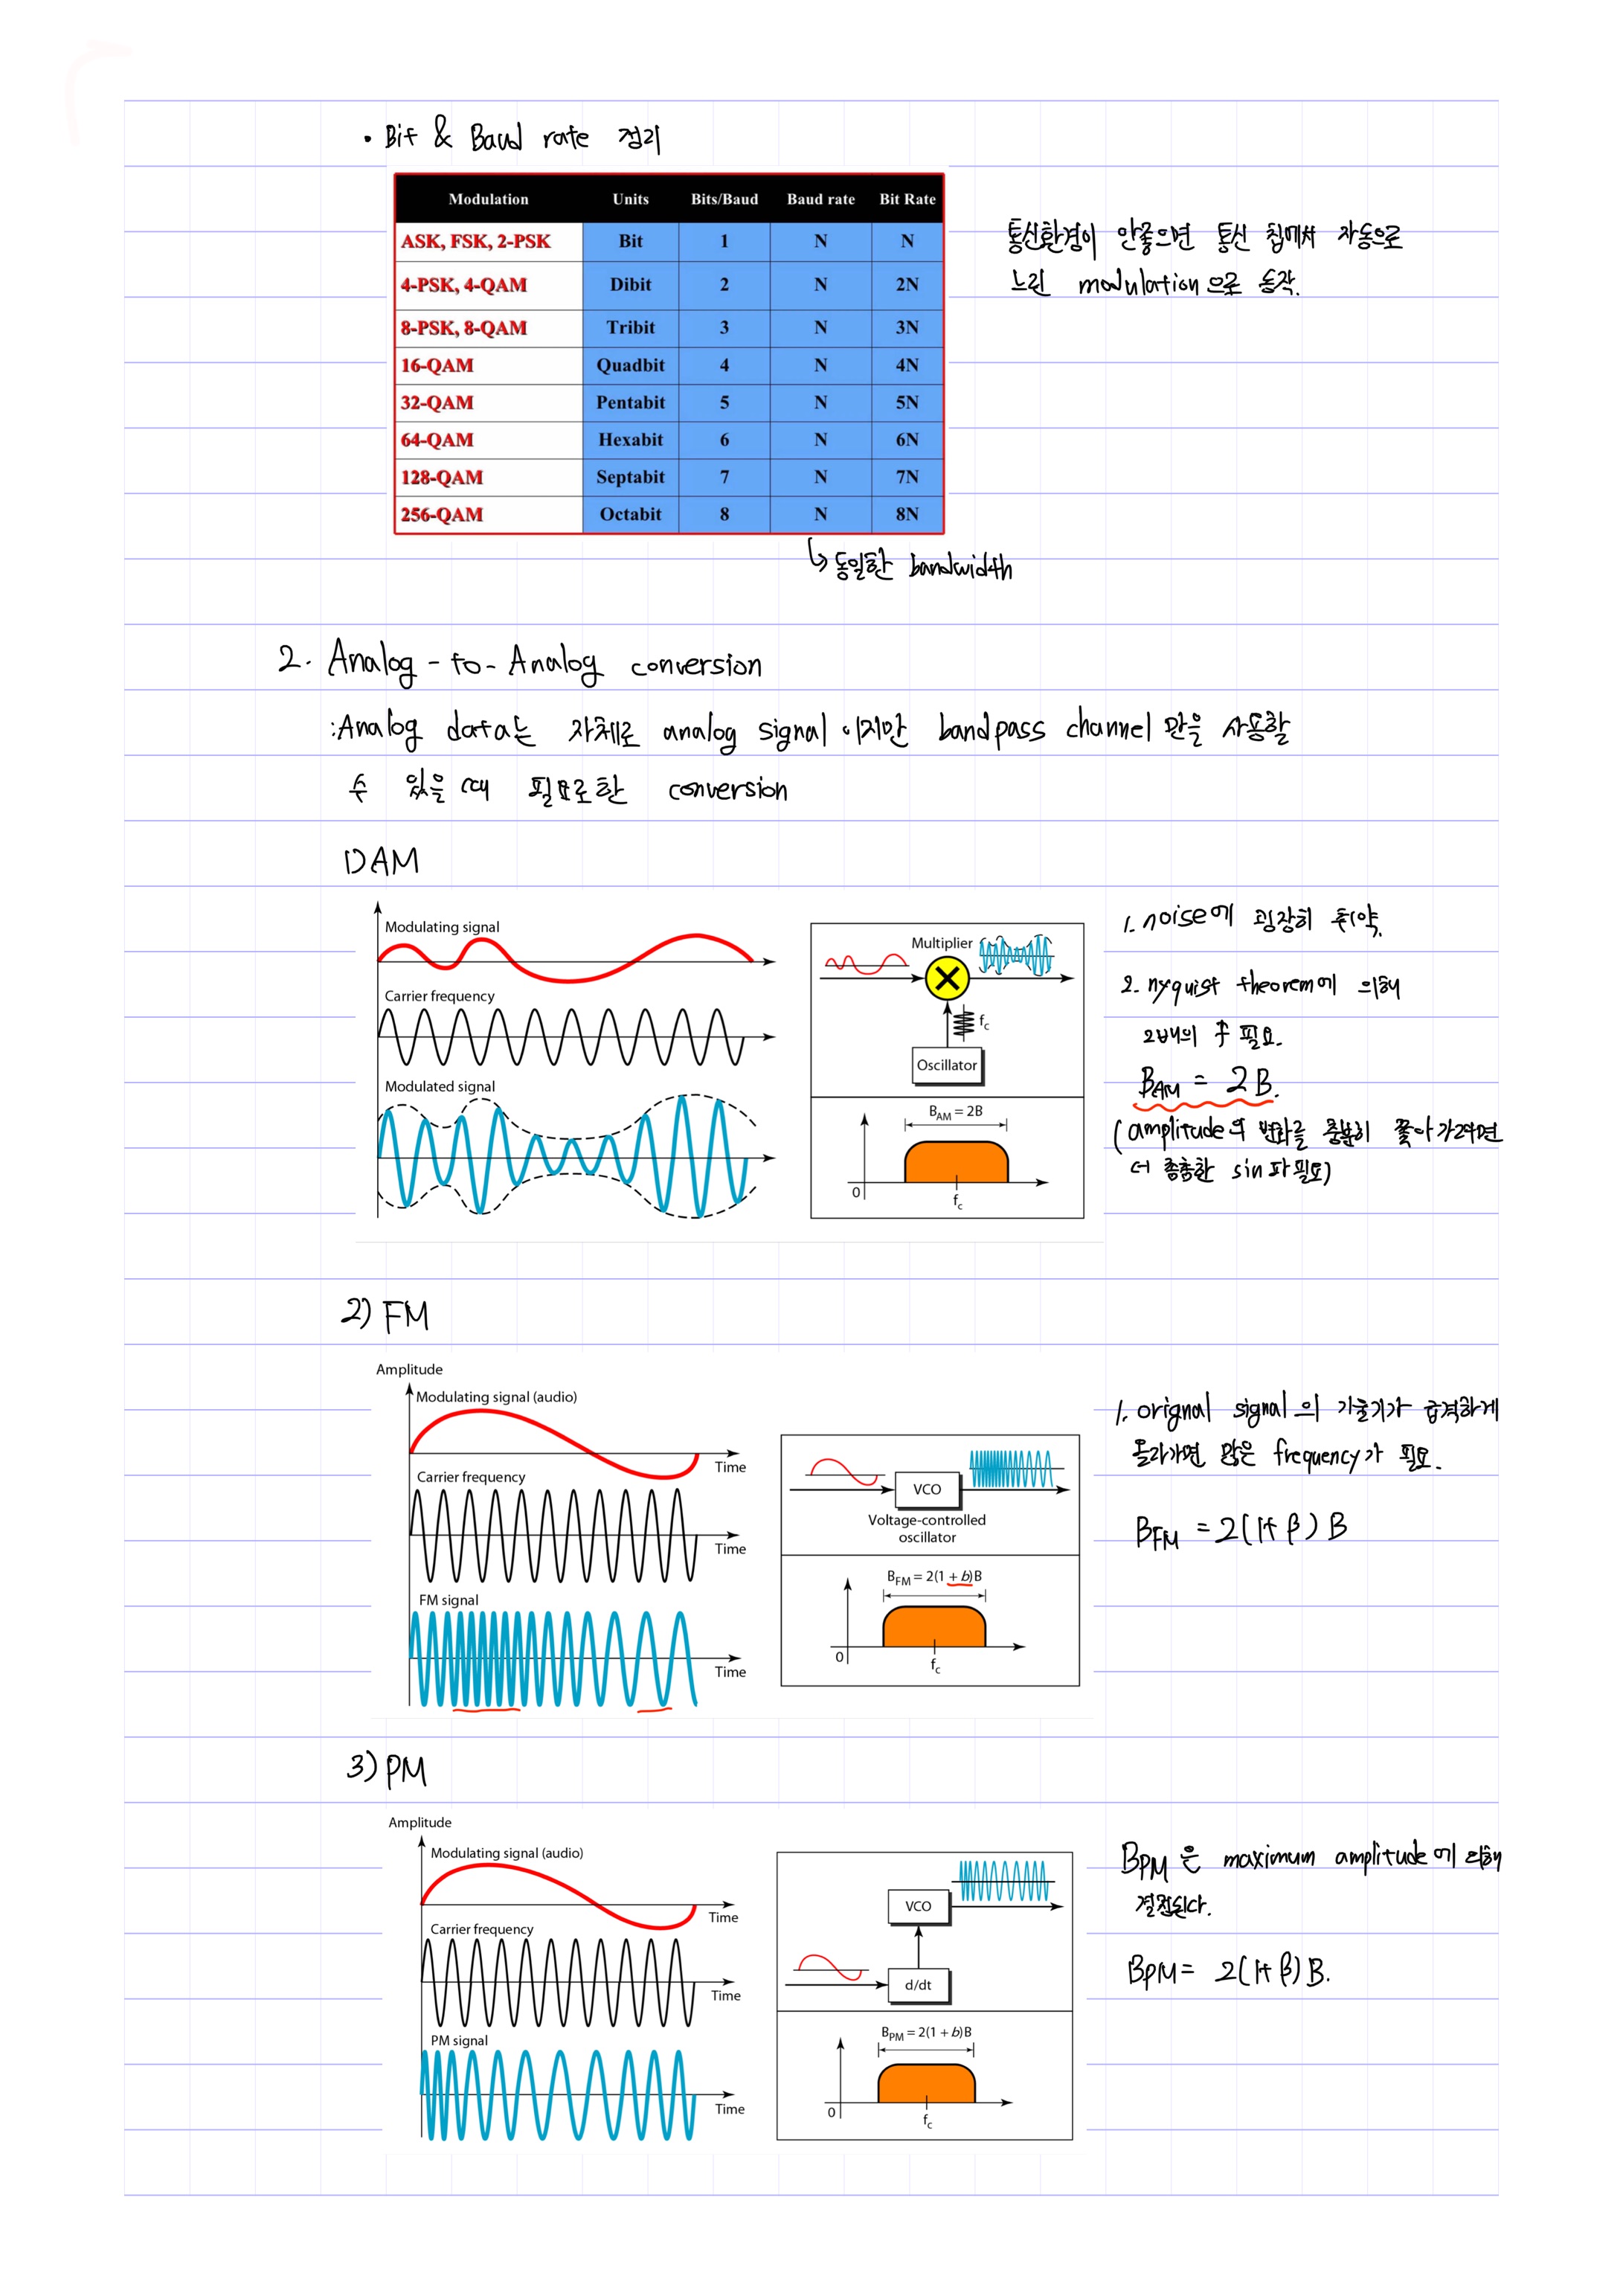 • Bit & Baud rate 정리
Modulation Units Bits/Baud Baud rate Bit Rate
ASK, FSK, 2-PSK Bit 1 N N
4-PSK, 4-QAM Dibit 2 N 2N
8-PSK, 8-QAM Tribit 3 N 3N
16-QAM Quadbit 4 N 4N
32-QAM Pentabit 5 N 5N
64-QAM Hexabit 6 N 6N
128-QAM Septabit 7 N 7N
256-QAM Octabit 8 N 8N
통신환경이 안좋으면 통신 칩에서 자동으로
느린 modulation으로 동작.
↳ 동일한 bandwidth
2. Analog-to-Analog conversion
: Analog data는 자체로 analog signal 이지만 bandpass channel 만을 사용할
수 있을 때 필요로한 conversion
1) AM
Modulating signal
Carrier frequency
Modulated signal
Multiplier
fc
Oscillator
BAM = 2B
0
fc
1. noise에 굉장히 취약.
2. nyquist theorem에 의해
2배의 f 필요.
BAM = 2B.
(amplitude의 변화를 충분히 쫓아가려면
더 촘촘한 sin파 필요)
2) FM
Amplitude
Modulating signal (audio)
Time
Carrier frequency
Time
FM signal
Time
VCO
Voltage-controlled
oscillator
BFM = 2(1 + b)B
0
fc
1. orignal signal의 기울기가 급격하게
올라가면 많은 frequency가 필요.
BFM = 2(1+β)B
3) PM
Amplitude
Modulating signal (audio)
Time
Carrier frequency
Time
PM signal
Time
VCO
d/dt
BPM = 2(1 + b)B
0
fc
BPM은 maximum amplitude에 의해
결정된다.
BPM = 2(1+β)B.